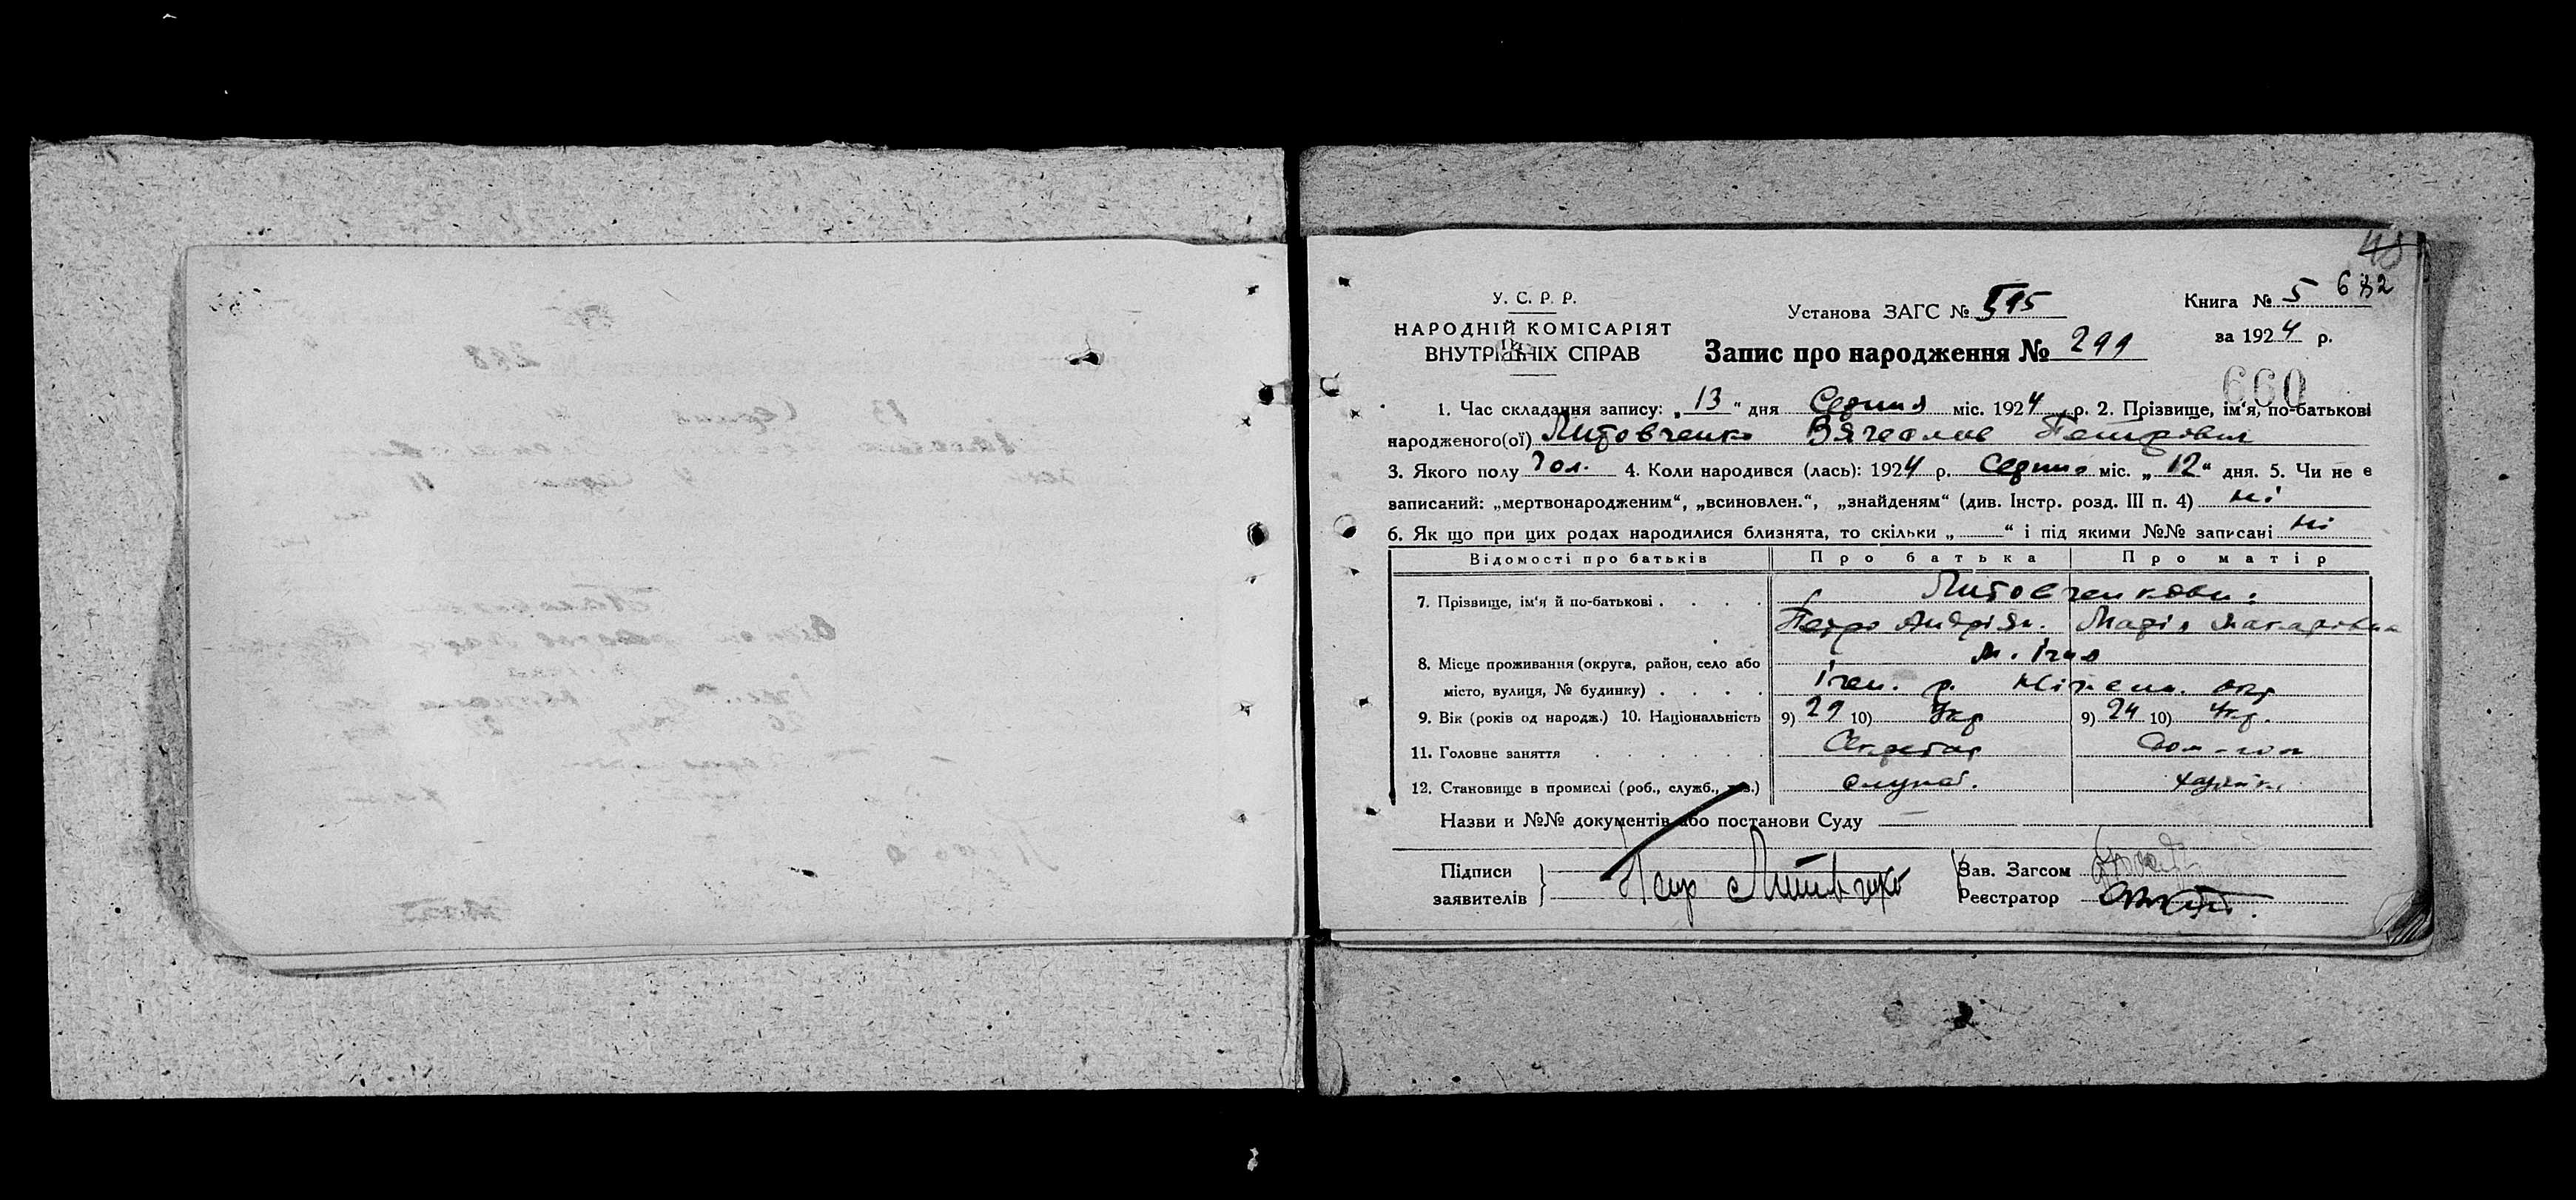 48
У. С. Р. Р.
НАРОДНІЙ КОМІСАРІЯТ
ВНУТРІШНІХ СПРАВ
Установа ЗАГС № 515
Книга № 5 682
за 1924 р.
Запис про народження № 299
660
1. Час складання запису: „13“ дня Серпня міс. 1924 р. 2. Прізвище, ім'я, по-батькові
народженого(ої) Литовченко Вячеслав Петрович
3. Якого полу Чол. 4. Коли народився (лась): 1924 р. Серпня міс. „12“ дня. 5. Чи не є
записаний: „мертвонародженим“, „всиновлен.“, „знайденям“ (див. Інстр. розд. III п. 4) ні
6. Як що при цих родах народилися близнята, то скільки „ “ і під якими №№ записані ні
Відомості про батьків Про батька Про матір
7. Прізвище, ім'я й по-батькові . . . . Литовченкови:
Петро Андріян. Марія Макаровна
8. Місце проживання (округа, район, село або м. Ічня
місто, вулиця, № будинку) . . . . Ічен. р. Ніжен. окр
9. Вік (років од народж.) 10. Національність 9) 29 10) Укр 9) 24 10) Укр.
11. Головне заняття . . . . . Секретар Дом-гос
12. Становище в промислі (роб., служб., хаз.) служб. хазяйк.
Назви и №№ документів або постанови Суду —
Підписи
заявителів Петр Литовченко
Зав. Загсом
Реєстратор